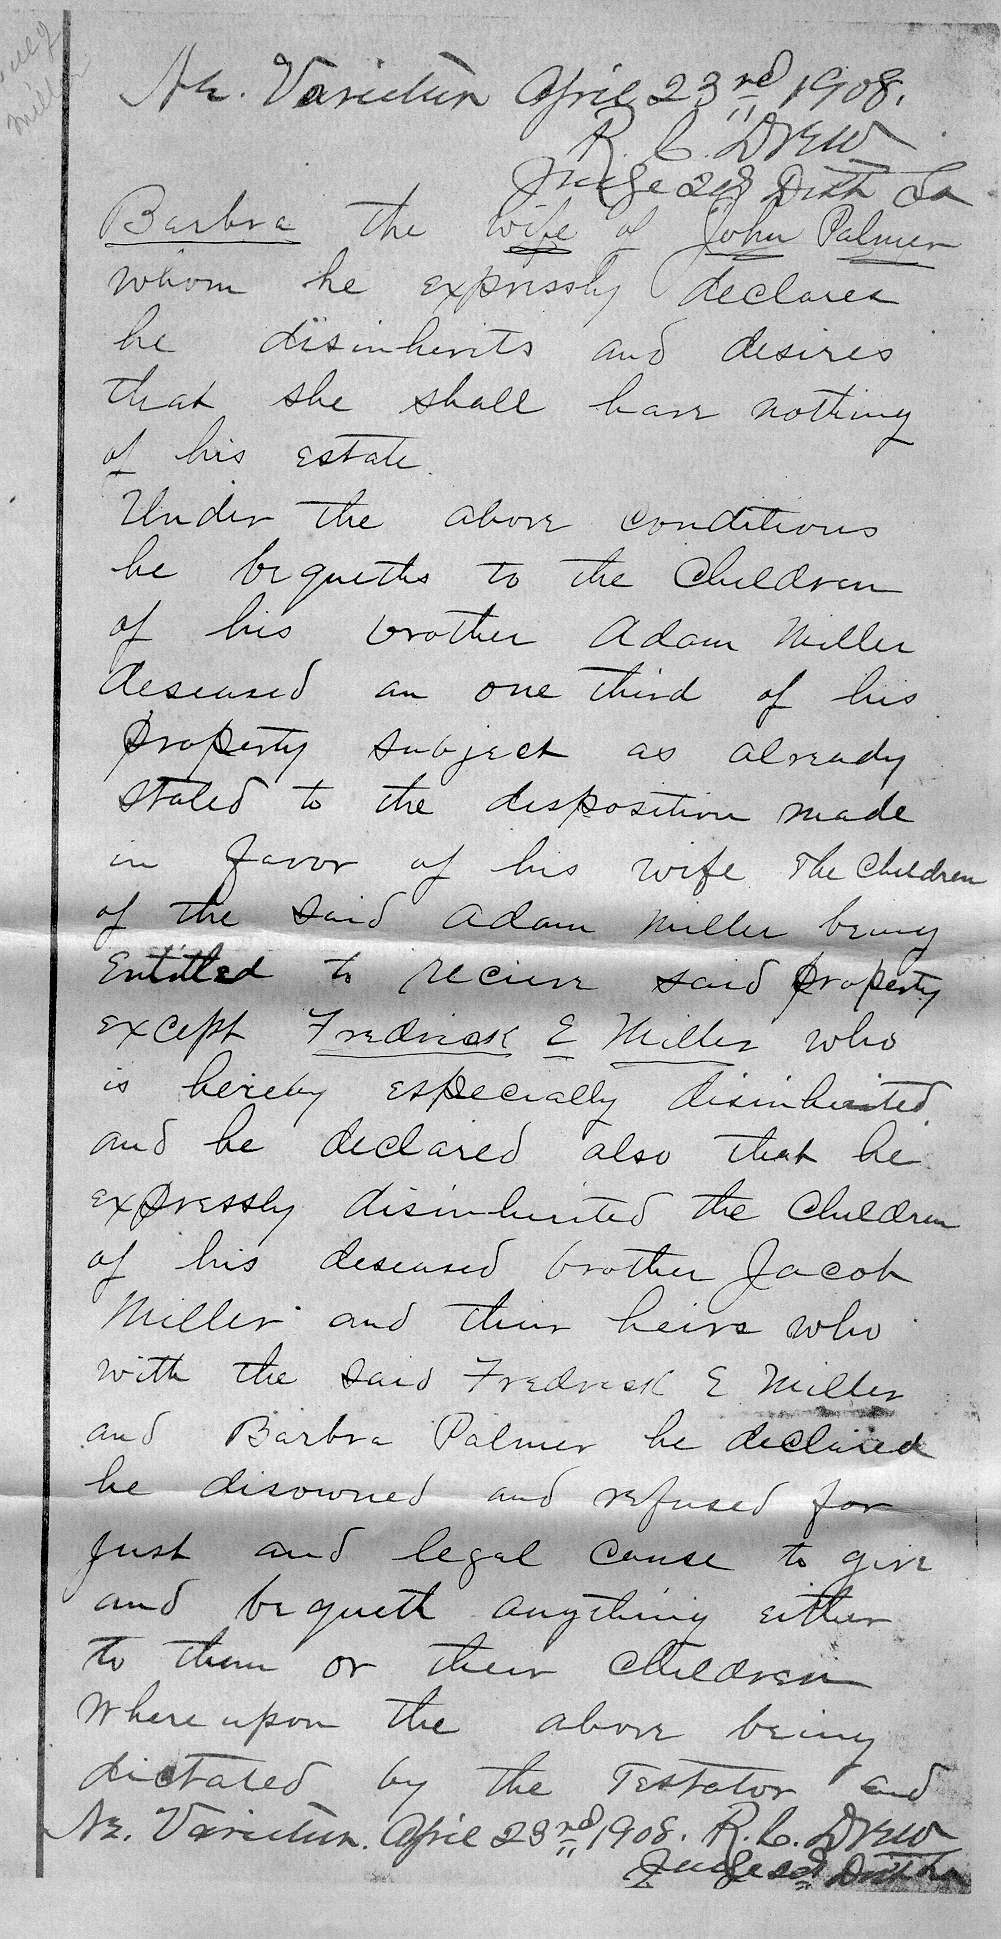 Ne. Varietur April 23rd 1908.
R. C. Drew
Judge 2d Dist La
Barbra the wife of John Palmer
whom he expressly declares
he disinherits and desires
that she shall have nothing
of his estate.
Under the above conditions
he bequeths to the Children
of his brother Adam Miller
deseased an one third of his
property subject as already
stated to the disposition made
in favor of his wife The Children
of the said Adam Miller being
Entitled to recieve said property
except Fredrick E Miller who
is hereby especially disinherited
and he declared also that he
expressly disinherited the Children
of his deseased brother Jacob
Miller and their heirs who
with the said Fredrick E Miller
and Barbra Palmer he declared
he disowned and refused for
just and legal cause to give
and bequeth anything either
to them or their Children
Where upon the above being
dictated by the Testator and
Ne. Varietur. April 23rd 1908. R. C. Drew
Judge 2d Dist La